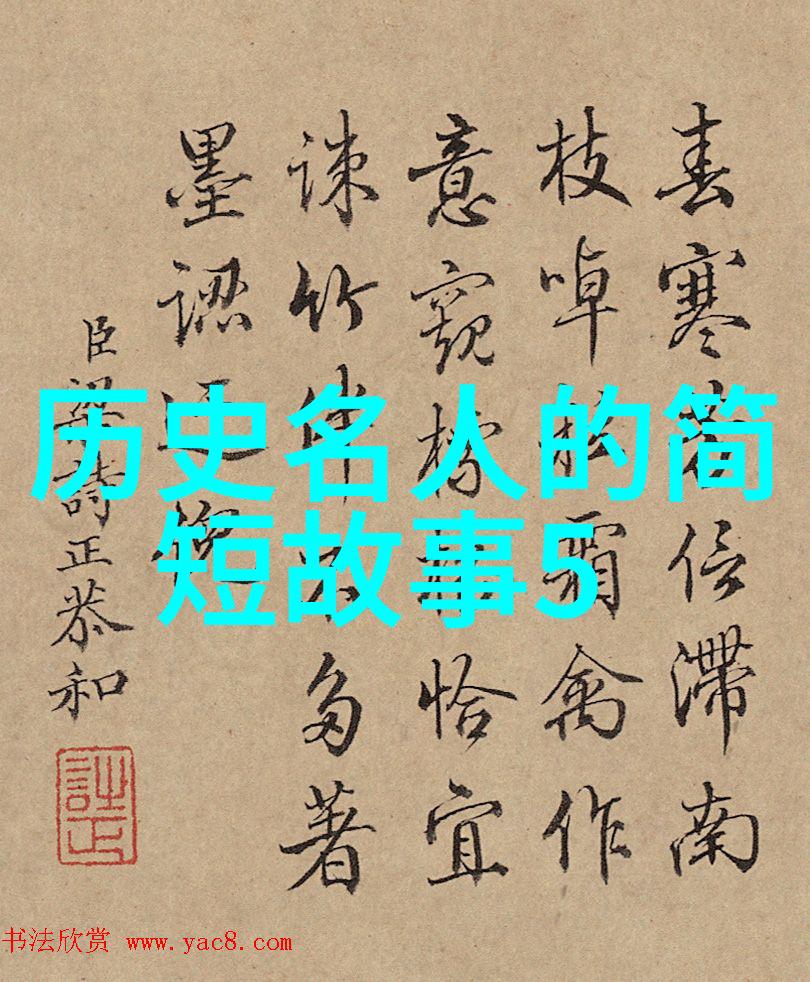 历史名人的简
短故事5
春寒信滞南
枝啅霜禽作
意窺恰宜
竹伴多著
墨認逋
臣梁詩正恭和
书法欣赏 www.yac8.com